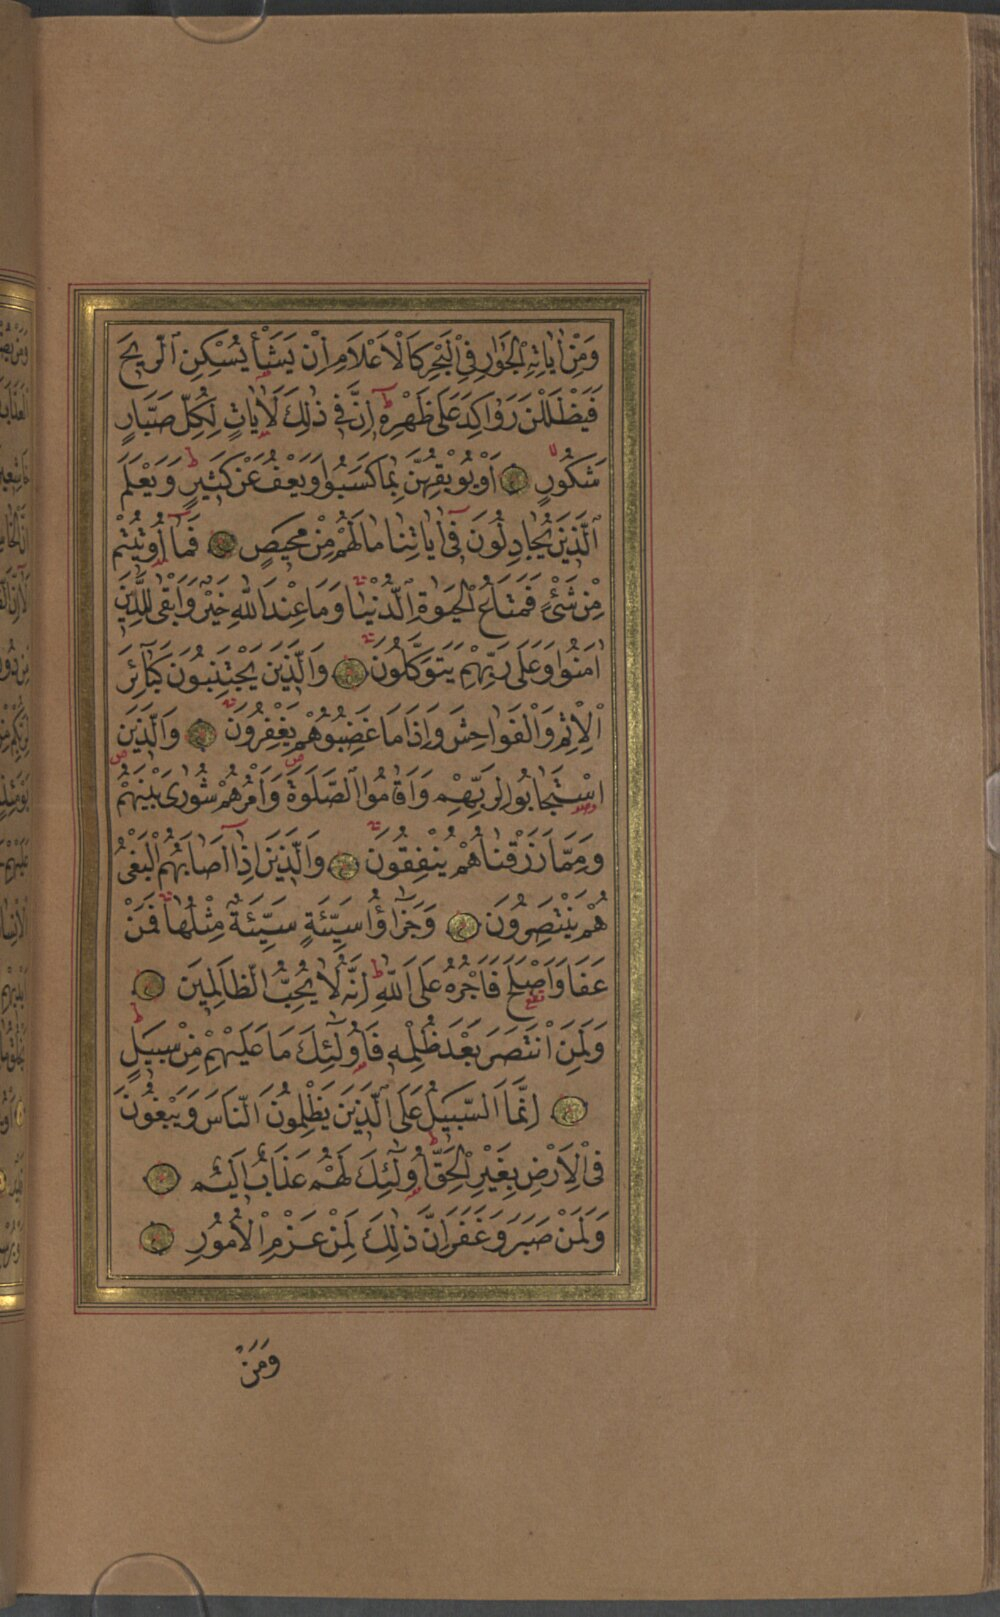 وَمِنْ اٰيَاتِهِ الْجَوَارِ فِي الْبَحْرِ كَالْاَعْلَامِ اِنْ يَشَأْ يُسْكِنِ الرّ۪يحَ
فَيَظْلَلْنَ رَوَاكِدَ عَلٰى ظَهْرِه۪ اِنَّ ف۪ي ذٰلِكَ لَاٰيَاتٍ لِكُلِّ صَبَّارٍ
شَكُورٍ اَوْ يُوبِقْهُنَّ بِمَا كَسَبُوا وَيَعْفُ عَنْ كَث۪يرٍ وَيَعْلَمَ
الَّذ۪ينَ يُجَادِلُونَ ف۪ٓي اٰيَاتِنَا مَا لَهُمْ مِنْ مَح۪يصٍ فَمَٓا اُو۫ت۪يتُمْ
مِنْ شَيْءٍ فَمَتَاعُ الْحَيٰوةِ الدُّنْيَا وَمَا عِنْدَ اللّٰهِ خَيْرٌ وَاَبْقٰى لِلَّذ۪ينَ
اٰمَنُوا وَعَلٰى رَبِّهِمْ يَتَوَكَّلُونَ وَالَّذ۪ينَ يَجْتَنِبُونَ كَبَٓائِرَ
الْاِثْمِ وَالْفَوَاحِشَ وَاِذَا مَا غَضِبُوا هُمْ يَغْفِرُونَ وَالَّذ۪ينَ
اسْتَجَابُوا لِرَبِّهِمْ وَاَقَامُوا الصَّلٰوةَ وَاَمْرُهُمْ شُورٰى بَيْنَهُمْ
وَمِمَّا رَزَقْنَاهُمْ يُنْفِقُونَ وَالَّذ۪ينَ اِذَٓا اَصَابَهُمُ الْبَغْيُ
هُمْ يَنْتَصِرُونَ وَجَزٰٓؤُا سَيِّئَةٍ سَيِّئَةٌ مِثْلُهَا فَمَنْ
عَفَا وَاَصْلَحَ فَاَجْرُهُ عَلَى اللّٰهِ اِنَّهُ لَا يُحِبُّ الظَّالِم۪ينَ
وَلَمَنِ انْتَصَرَ بَعْدَ ظُلْمِه۪ فَاُو۬لٰٓئِكَ مَا عَلَيْهِمْ مِنْ سَب۪يلٍ
اِنَّمَا السَّب۪يلُ عَلَى الَّذ۪ينَ يَظْلِمُونَ النَّاسَ وَيَبْغُونَ
فِي الْاَرْضِ بِغَيْرِ الْحَقِّ اُو۬لٰٓئِكَ لَهُمْ عَذَابٌ اَل۪يمٌ
وَلَمَنْ صَبَرَ وَغَفَرَ اِنَّ ذٰلِكَ لَمِنْ عَزْمِ الْاُمُورِ
وَمَنْ